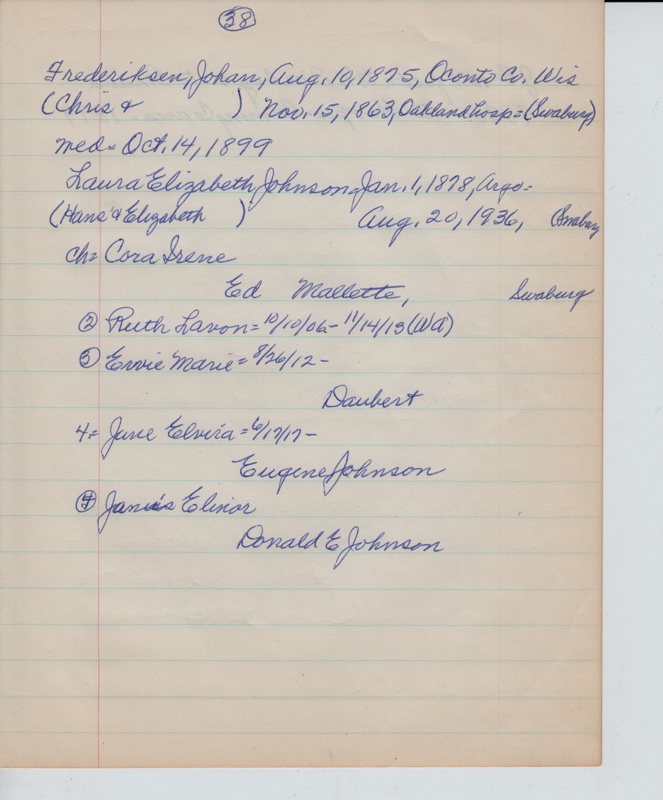 38
Frederiksen, Johan, Aug. 10, 1875, Oconto Co. Wis
(Chris & ) Nov. 15, 1863, Oakland hosp= (Swaburg)
med= Oct. 14, 1899
Laura Elizabeth Johnson= Jan. 1, 1878, Argo=
(Hans & Elizabeth ) Aug. 20, 1936, Swaburg
ch= Cora Irene
Ed Mallette, Swaburg
② Ruth Lavon= 10/10/06- 11/14/13 (Wa)
③ Ervie Marie= 8/26/12-
Daubert
4= June Elvira= 6/17/17-
Eugene Johnson
④ Janis Elinor
Donald E Johnson